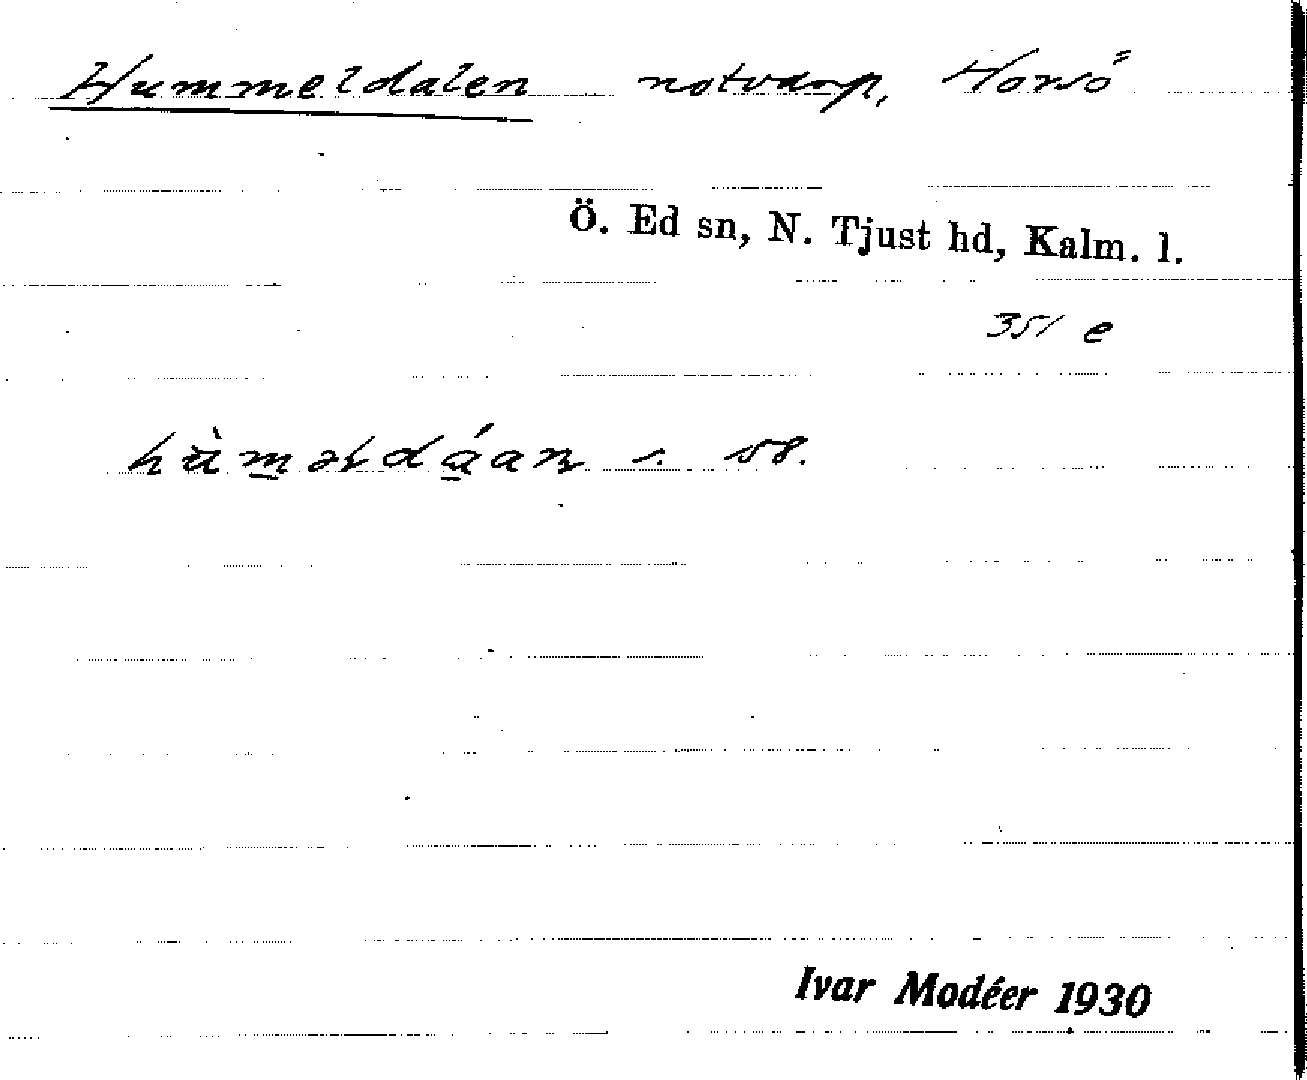 Hummeldalen notvarp, Horsö
Ö. Ed sn, N. Tjust hd, Kalm. l.
351 e
s. 58.
Ivar Modéer 1930